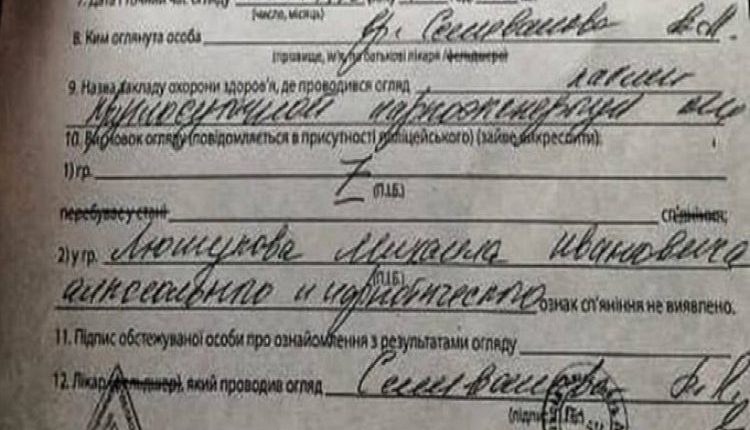 7. Дата і точний час огляду
(число, місяць)
8. Ким оглянута особа вр. Селиванова А.И.
(прізвище, ім'я, по батькові лікаря /фельдшера)
9. Назва закладу охорони здоров'я, де проводився огляд кабинет
круглосуточной наркоэкспертизы
10. Висновок огляду (повідомляється в присутності поліцейського) (зайве викреслити):
1) гр. Z
(П.І.Б.)
перебуває у стані сп'яніння;
2) у гр. Михаила Ивановича
(П.І.Б.)
алкогольного и наркотического ознак сп'яніння не виявлено.
11. Підпис обстежуваної особи про ознайомлення з результатами огляду
12. Лікар (фельдшер), який проводив огляд Селиванова
(підпис